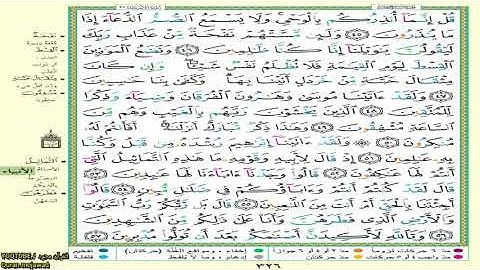 قُلْ إِنَّمَا أُنذِرُكُم بِالْوَحْيِ وَلَا يَسْمَعُ الصُّمُّ الدُّعَاءَ إِذَا
مَا يُنذَرُونَ ٤٥ وَلَئِن مَّسَّتْهُمْ نَفْحَةٌ مِّنْ عَذَابِ رَبِّكَ
لَيَقُولُنَّ يَٰوَيْلَنَا إِنَّا كُنَّا ظَٰلِمِينَ ٤٦ وَنَضَعُ الْمَوَٰزِينَ
الْقِسْطَ لِيَوْمِ الْقِيَٰمَةِ فَلَا تُظْلَمُ نَفْسٌ شَيْـًٔا وَإِن كَانَ
مِثْقَالَ حَبَّةٍ مِّنْ خَرْدَلٍ أَتَيْنَا بِهَا وَكَفَىٰ بِنَا حَٰسِبِينَ
٤٧ وَلَقَدْ ءَاتَيْنَا مُوسَىٰ وَهَٰرُونَ الْفُرْقَانَ وَضِيَاءً وَذِكْرًا
لِّلْمُتَّقِينَ ٤٨ الَّذِينَ يَخْشَوْنَ رَبَّهُم بِالْغَيْبِ وَهُم مِّنَ
السَّاعَةِ مُشْفِقُونَ ٤٩ وَهَٰذَا ذِكْرٌ مُّبَارَكٌ أَنزَلْنَٰهُ أَفَأَنتُمْ لَهُ
مُنكِرُونَ ٥٠ وَلَقَدْ ءَاتَيْنَا إِبْرَٰهِيمَ رُشْدَهُ مِن قَبْلُ وَكُنَّا
بِهِ عَٰلِمِينَ ٥١ إِذْ قَالَ لِأَبِيهِ وَقَوْمِهِ مَا هَٰذِهِ التَّمَاثِيلُ الَّتِي
أَنتُمْ لَهَا عَٰكِفُونَ ٥٢ قَالُوا وَجَدْنَا ءَابَاءَنَا لَهَا عَٰبِدِينَ ٥٣
قَالَ لَقَدْ كُنتُمْ أَنتُمْ وَءَابَاؤُكُمْ فِي ضَلَٰلٍ مُّبِينٍ ٥٤ قَالُوا
أَجِئْتَنَا بِالْحَقِّ أَمْ أَنتَ مِنَ اللَّٰعِبِينَ ٥٥ قَالَ بَل رَّبُّكُمْ رَبُّ السَّمَٰوَٰتِ
وَالْأَرْضِ الَّذِي فَطَرَهُنَّ وَأَنَا عَلَىٰ ذَٰلِكُم مِّنَ الشَّٰهِدِينَ
٥٦ وَتَاللَّهِ لَأَكِيدَنَّ أَصْنَٰمَكُم بَعْدَ أَن تُوَلُّوا مُدْبِرِينَ ٥٧
٣٢٦
الأنبياء